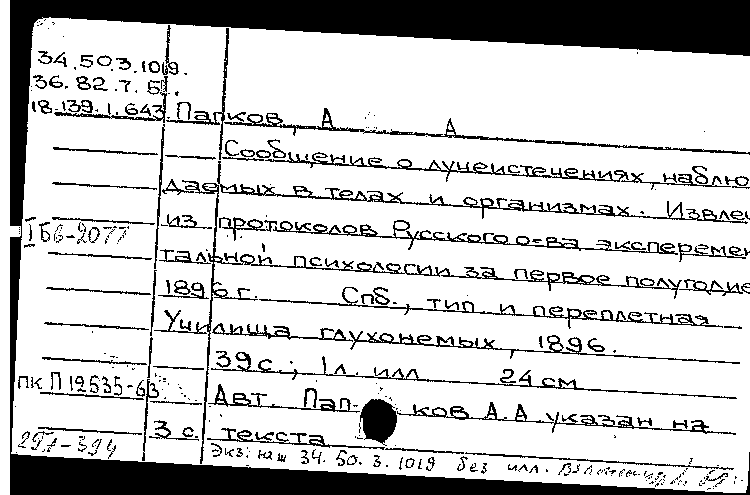 34.50.3.1019.
36.82.7.5.
18.139.1.643
Папков, А А
Сообщение о лучеистечениях, наблю
даемых в телах и организмах. Извлеч
из протоколов Русского о-ва эксперемен
тальной психологии за первое полугодие
1896 г. Спб., тип. и переплетная
Училища глухонемых, 1896.
39 с.; 1 л. илл 24 см
Авт. Пап- ков А.А указан на
3 с. текста
I Бв-2077
ПК П 12535-63
291-394
Экз: наш 34.50.3.1019 без илл.